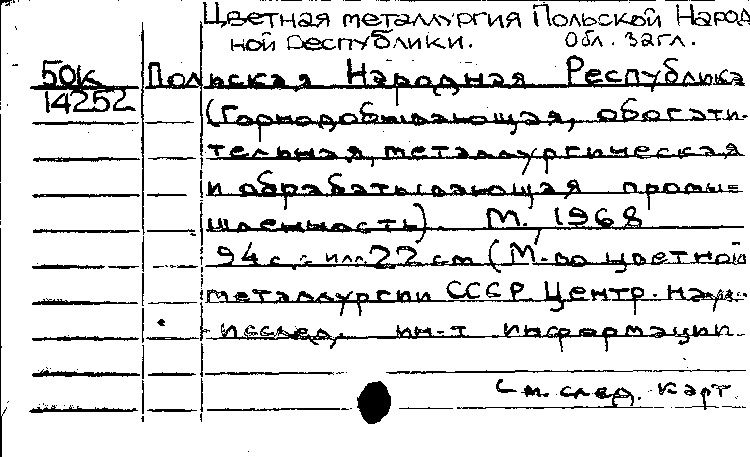 Цветная металлургия Польской Народ
ной Республики. Обл. загл.
50к Польская Народная Республика
14252 (Горнодобывающая, обогати-
тельная, металлургическая
и обрабатывающая промы=
шленность). М. 1968
94 с. с илл. 22 см (М-во цветной
металлургии СССР. Центр. науч.-
исслед. ин-т информации
См. след. карт.